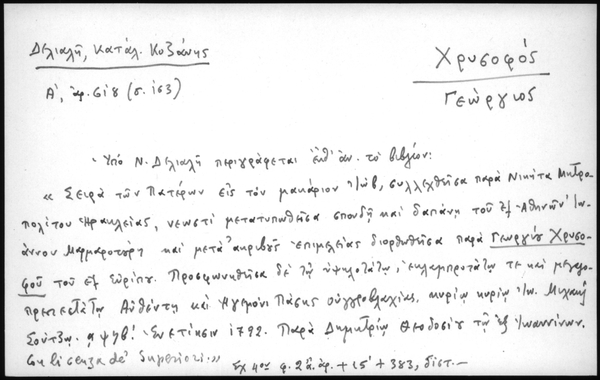 Δελιαλῆ, Κατάλ. Κοζάνης
Χρυσοφός
Γεώργιος
Α', ἀρ.
Ὑπὸ Ν. Δελιαλῆ περιγράφεται ἐπθ' ἀν. τὸ βιβλίον:
« Σειρὰ τῶν Πατέρων εἰς τὸν μακάριον Ἰώβ, συλλεχθεῖσα παρὰ Νικήτα Μητρο-
πολίτου Ἡρακλείας, νεωστὶ μετατυπωθεῖσα σπουδῇ καὶ δαπάνῃ τοῦ ἐξ Ἀθηνῶν Ἰω-
άννου Μαρμαροτούρη καὶ μετὰ ἀκριβοῦς ἐπιμελείας διορθωθεῖσα παρὰ Γεωργίου Χρυσο-
φοῦ τοῦ ἐξ Εὐρίπου. Προσφωνηθεῖσα δὲ τῷ ὑψηλοτάτῳ, ἐκλαμπροτάτῳ τε καὶ μεγαλο-
πρεπεστάτῳ Αὐθέντῃ καὶ Ἡγεμόνι Πάσης Οὑγγροβλαχίας, κυρίῳ κυρίῳ Ἰω. Μιχαὴλ
Σούτζῳ. αψϟβ! Ἐνετίησιν 1792. Παρὰ Δημητρίῳ Θεοδοσίου τῷ ἐξ Ἰωαννίνων.
Con licenza de' Superiori.»
Σχ 4ον φ. 2 ἄ. ἀρ. + 15' + 383, δίστ.—